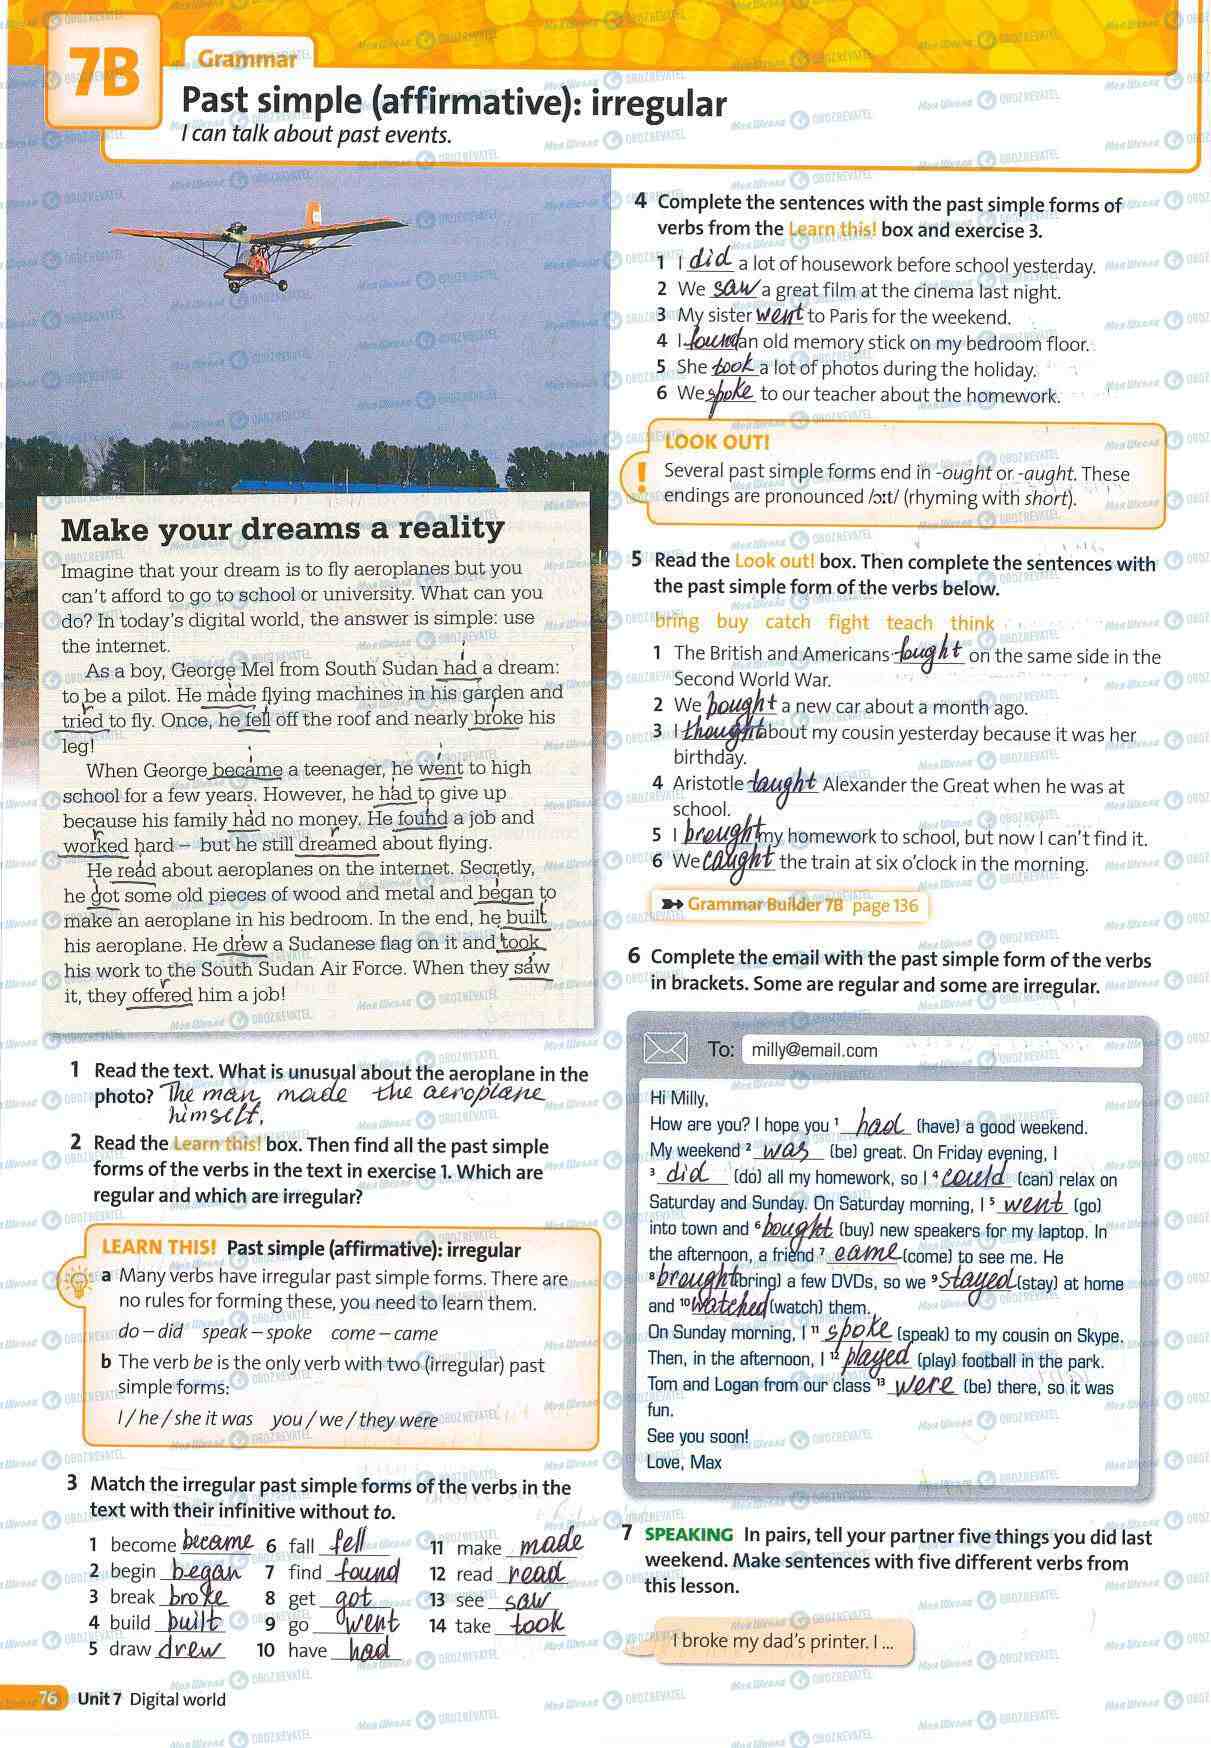 7B
Grammar
Past simple (affirmative): irregular
I can talk about past events.
Make your dreams a reality
Imagine that your dream is to fly aeroplanes but you
can't afford to go to school or university. What can you
do? In today's digital world, the answer is simple: use
the internet.
As a boy, George Mel from South Sudan had a dream:
to be a pilot. He made flying machines in his garden and
tried to fly. Once, he fell off the roof and nearly broke his
leg!
When George became a teenager, he went to high
school for a few years. However, he had to give up
because his family had no money. He found a job and
worked hard – but he still dreamed about flying.
He read about aeroplanes on the internet. Secretly,
he got some old pieces of wood and metal and began to
make an aeroplane in his bedroom. In the end, he built
his aeroplane. He drew a Sudanese flag on it and took
his work to the South Sudan Air Force. When they saw
it, they offered him a job!
1 Read the text. What is unusual about the aeroplane in the
photo? The man made the aeroplane
himself.
2 Read the Learn this! box. Then find all the past simple
forms of the verbs in the text in exercise 1. Which are
regular and which are irregular?
LEARN THIS! Past simple (affirmative): irregular
a Many verbs have irregular past simple forms. There are
no rules for forming these, you need to learn them.
do – did speak – spoke come – came
b The verb be is the only verb with two (irregular) past
simple forms:
I / he / she it was you / we / they were
3 Match the irregular past simple forms of the verbs in the
text with their infinitive without to.
1 become became 6 fall fell 11 make made
2 begin began 7 find found 12 read read
3 break broke 8 get got 13 see saw
4 build built 9 go went 14 take took
5 draw drew 10 have had
76 Unit 7 Digital world
4 Complete the sentences with the past simple forms of
verbs from the Learn this! box and exercise 3.
1 I did a lot of housework before school yesterday.
2 We saw a great film at the cinema last night.
3 My sister went to Paris for the weekend.
4 I found an old memory stick on my bedroom floor.
5 She took a lot of photos during the holiday.
6 We spoke to our teacher about the homework.
LOOK OUT!
! Several past simple forms end in -ought or -aught. These
endings are pronounced /ɔːt/ (rhyming with short).
5 Read the Look out! box. Then complete the sentences with
the past simple form of the verbs below.
bring buy catch fight teach think
1 The British and Americans fought on the same side in the
Second World War.
2 We bought a new car about a month ago.
3 I thought about my cousin yesterday because it was her
birthday.
4 Aristotle taught Alexander the Great when he was at
school.
5 I brought my homework to school, but now I can't find it.
6 We caught the train at six o'clock in the morning.
Grammar Builder 7B page 136
6 Complete the email with the past simple form of the verbs
in brackets. Some are regular and some are irregular.
To: milly@email.com
Hi Milly,
How are you? I hope you 1 had (have) a good weekend.
My weekend 2 was (be) great. On Friday evening, I
3 did (do) all my homework, so I 4 could (can) relax on
Saturday and Sunday. On Saturday morning, I 5 went (go)
into town and 6 bought (buy) new speakers for my laptop. In
the afternoon, a friend 7 came (come) to see me. He
8 brought (bring) a few DVDs, so we 9 stayed (stay) at home
and 10 watched (watch) them.
On Sunday morning, I 11 spoke (speak) to my cousin on Skype.
Then, in the afternoon, I 12 played (play) football in the park.
Tom and Logan from our class 13 were (be) there, so it was
fun.
See you soon!
Love, Max
7 SPEAKING In pairs, tell your partner five things you did last
weekend. Make sentences with five different verbs from
this lesson.
I broke my dad's printer. I ...